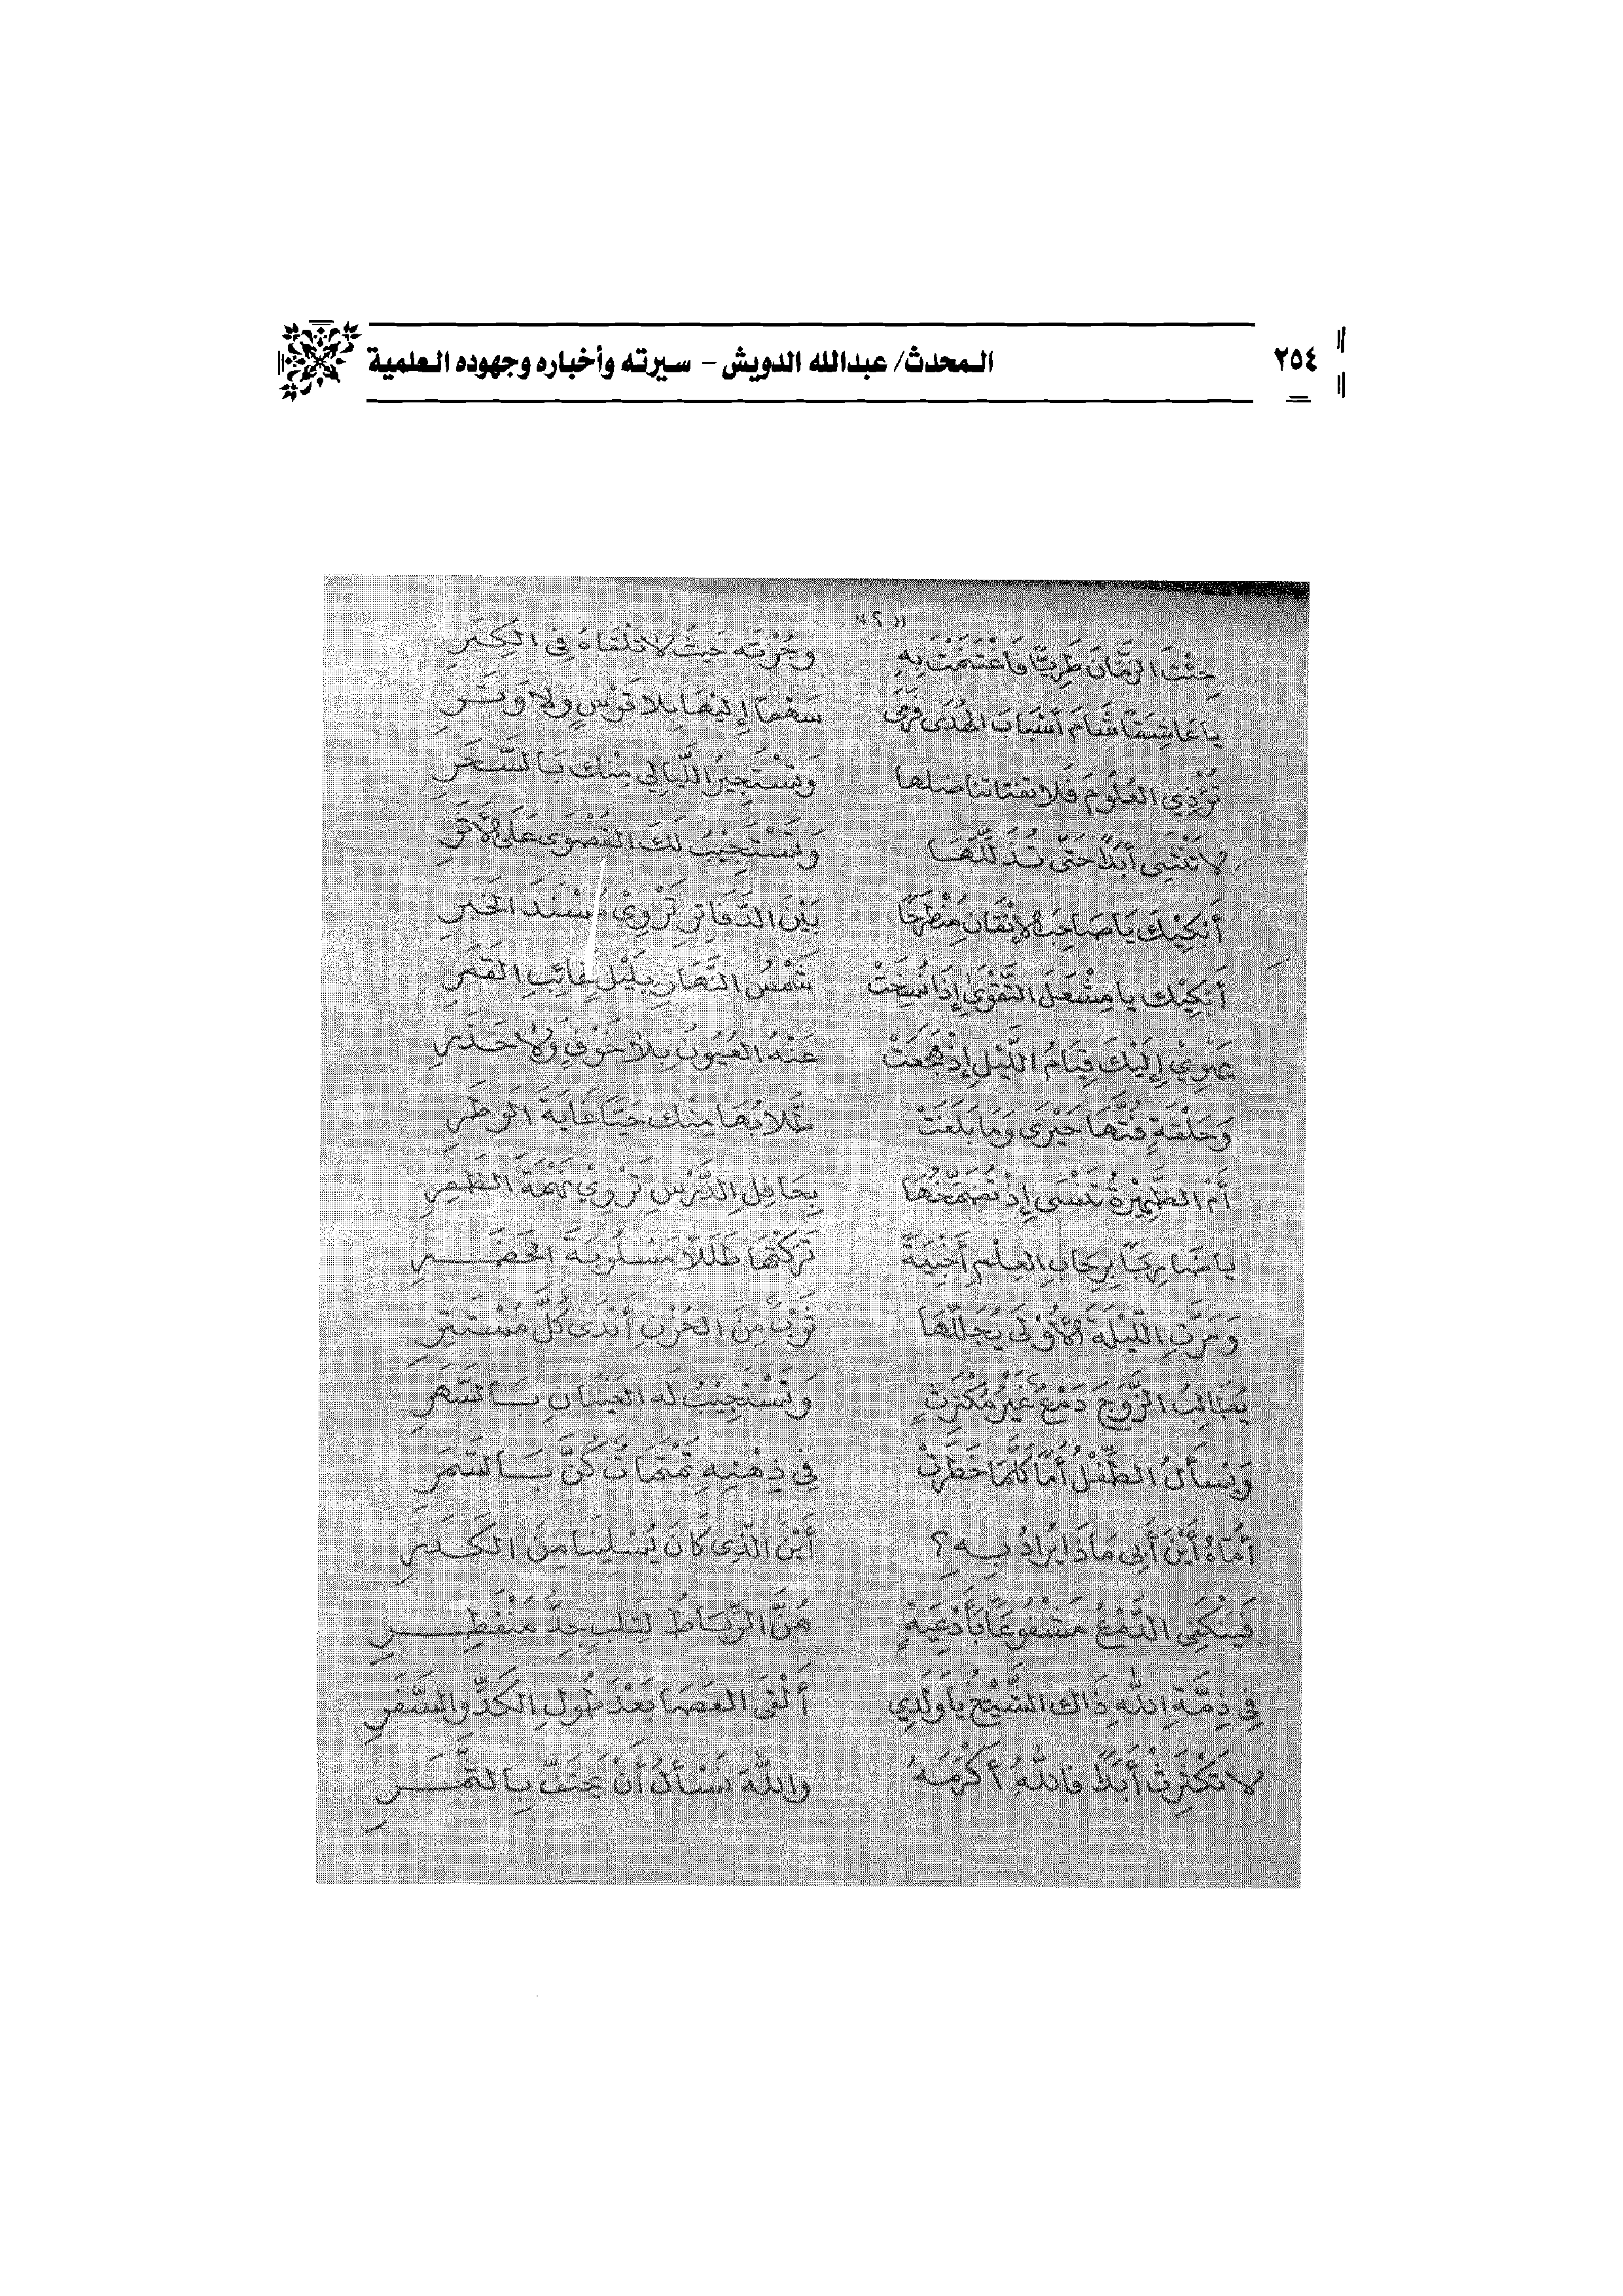 ٢٥٤ المحدث/ عبدالله الدويش - سيرته وأخباره وجهوده العلمية
«٢»
جِئْتَ الزَّمَانَ طَرِيًّا فَاغْتَنَمْتَ بِهِ وَحُزْتَه حَيثُ لَا تَلْقَاهُ فِي الْكِبَرِ
يا عَاشِقًا شَامَ أَسْبَابَ الْهُدَى فَرَمَى سَهْمًا إِلَيْهَا بِلا قَوْسٍ وَلا وَتَرِ
العُلُومَ فَلا تناضلها وَتَسْتَجِيرُ اللَّيالِي مِنْك بَالسَّحَرِ
لا تَنْثَنِي أَبَدًا حَتَّى تُذَلِّلَهَا وَتَسْتَجِيْبُ لَكَ القُصْوَى عَلَى الْأَثَرِ
أَبْكِيْكَ يَا صَاحِبَ الْإِتْقَانِ مُنْطَرِحًا بَيْنَ الدَّفَاتِرِ تَرْوِيْ مُسْنَدَ الْخَبَرِ
أَبْكِيْك يا مِشْعَلَ التَّقْوَى إِذَا نُسِخَتْ شَمْسُ النَّهَارِ بِلَيْلٍ غائِبِ القَمَرِ
إِلَيْكَ قِيَامُ اللَّيْلِ إِذْ هَجَعَتْ عَنْهُ العُيُونُ بِلا خَوْفٍ وَلا حَذَرِ
وَحَلْقَةٍ فُتَّهَا حَيْرَى وَمَا بَلَغَتْ طُلابُهَا مِنْك حَيًّا غَايَةَ الْوَطَرِ
أَمِ الظَّهِيْرَةُ تَنْسَى إِذْ تُضَمِّخُهَا بِحَافِلِ الدَّرْسِ تَرْوِيْ نَهْمَةَ
يا ضَارِبًا بِرِحَابِ العِلْمِ أَخْبِيَةً تَرَكْتَهَا طَلَلًا مَسْلُوبَةَ الْحَضَرِ
وَمَرَّتِ اللَّيْلَةُ الْأُوْلَى يُجَلِّلُهَا ثَوْبٌ مِنَ الحُزْنِ أَبْدَى كُلَّ مُسْتَتِرِ
يُطَالِبُ الزَّوْجَ دَمْعٌ غَيْرُ مُكْتَرِثٍ وَتَسْتَجِيْبُ لَه العَيْنَانِ بَالسَّهَرِ
وَيَسأَلُ الطِّفْلُ أُمًّا كُلَّمَا خَطَرَتْ فِي ذِهْنِهِ تَمْتَمَاتٌ كُنَّ بَالسَّمَرِ
أُمَّاهُ أَيْنَ أَبِي مَاذَا يُرَادُ بِهِ؟ أَيْنَ الَّذِي كَانَ يُسْلِيْنَا مِنَ الْكَدَرِ
فَيَنْكَفِي الدَّمْعُ مَشْفُوعًا بَأَدْعِيَةٍ هُنَّ الرِّبَاطُ لِقَلبٍ جِدُّ مُنْفَطِرِ
فِي ذِمَّةِ اللهِ ذَاك الشَّيْخُ يا وَلَدِي أَلْقَى العَصَا بَعْدَ طُولِ الْكَدِّ وَالسَّفَرِ
لا تَكْتَرِثْ أَبَدًا فَاللهُ أَكْرَمَهُ وَاللهَ نَسْأَلُ أَنْ بِالثَّمَرِ